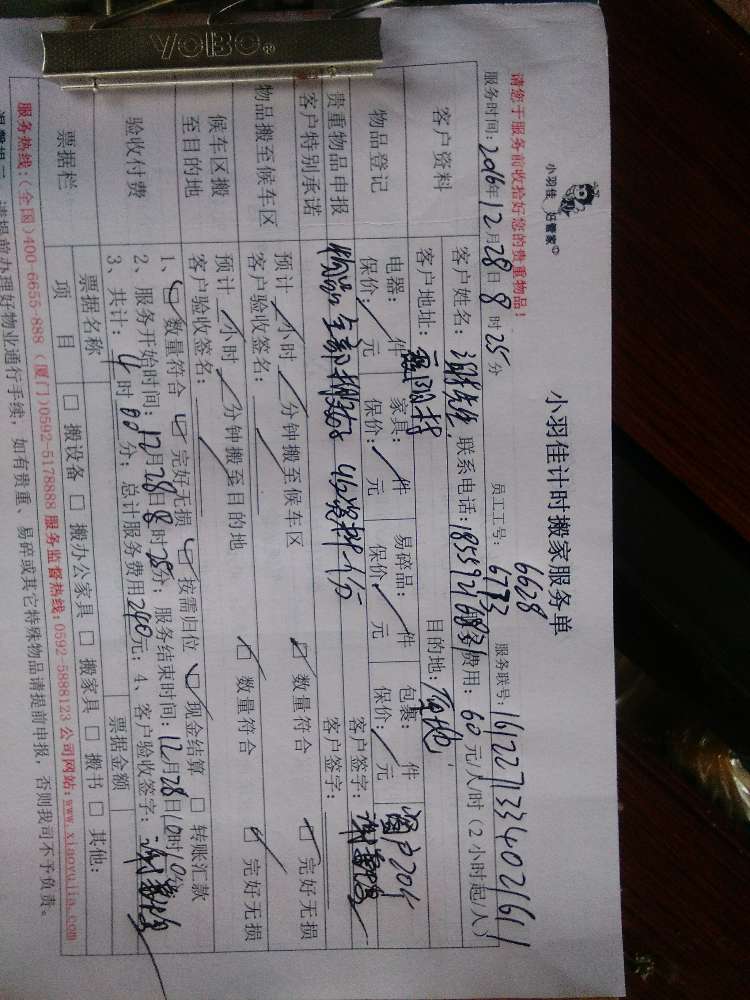 VOBO®
小羽佳 好管家
小羽佳计时搬家服务单
请您于服务前收拾好您的贵重物品!
6628
服务时间: 2016年12月28日8时25分 员工工号: 6733 服务联号: 161227133402161
客户资料
客户姓名: 谢先生 联系电话: 服务费用: 60元/人/时(2小时起/人)
客户地址: 目的地:
物品登记
电器: 件 家具: 件 易碎品: 件 包裹: 件
保价: 元 保价: 元 保价: 元 保价: 元
贵重物品申报
客户特别承诺
物品全部 客户签字:
客户签字:
物品搬至候车区
预计 小时 分钟搬至候车区 数量符合 完好无损
客户验收签名:
候车区搬
至目的地
预计 小时 分钟搬至目的地 数量符合 完好无损
客户验收签名:
验收付费
1、 数量符合 完好无损 按需归位 现金结算 转账汇款
2、服务开始时间: 12月28日8时25分; 服务结束时间: 12月28日10时10分
3、共计: 4时00分; 总计服务费用240元; 4、客户验收签字:
票据栏
票据名称 票据金额
项 目 搬设备 搬办公家具 搬家具 搬书 其他:
服务热线:(全国)400-6655-888 (厦门)0592-5178888 服务监督热线:0592-5888123 公司网站:www.xiaoyujia.com
请提前办理好物业通行手续, 如有贵重、易碎或其它特殊物品请提前申报, 否则我司不予负责。